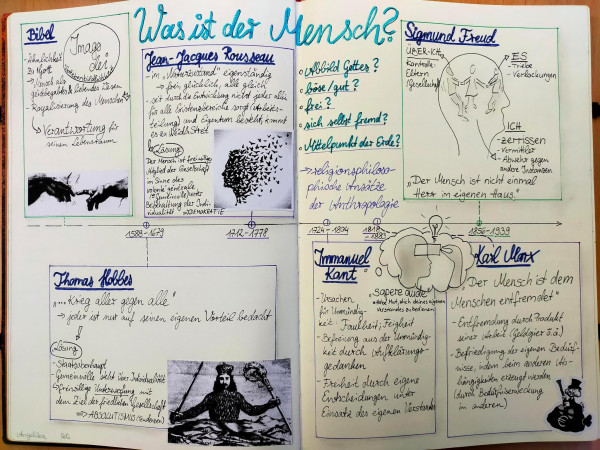 Was ist der Mensch?
Bibel
- Ähnlichkeit
zu Gott
→ Mensch als
gottbegabtes & liebendes Wesen
- Royalisierung des Menschen
→ Verantwortung für
seinen Lebensraum
Imago
Dei
Jean-Jacques Rousseau
- im "Naturzustand" eigenständig
→ frei, glücklich, alle gleich
- seit durch die Entwicklung nicht jeder alles
für alle Existenzbereiche sorgt (Arbeits-
teilung) und Eigentum besteht, kommt
es zu Neid & Streit
Lösung
Der Mensch ist freiwillig
Mitglied der Gesellschaft
im Sinne des
volonté générale
(= Gemeinwille) unter
Beibehaltung der Indi-
vidualität → DEMOKRATIE
• Abbild Gottes?
• böse/gut?
• frei?
• sich selbst fremd?
• Mittelpunkt der Erde?
→ religionsphiloso-
phische Ansätze
der Anthropologie
Sigmund Freud
ÜBER-ICH
- Kontrolle
- Eltern
- Gesellschaft
ES
- Triebe
- Verlockungen
ICH
- zerrissen
- Vermittler
- Abwehr gegen
andere Instanzen
"Der Mensch ist nicht einmal
Herr im eigenen Haus."
1588-1679
1712-1778
1724-1804
1818
-1883
1856-1939
Thomas Hobbes
"... Krieg aller gegen alle"
→ jeder ist nur auf seinen eigenen Vorteil bedacht
Lösung
- Staatsoberhaupt
- Gemeinwille steht über Individualität
- freiwillige Unterwerfung mit
dem Ziel der friedlichen Gesellschaft
⇒ ABSOLUTISMUS
Immanuel
Kant
"sapere aude"
Habe Mut, dich deines eigenen
Verstandes zu bedienen
- Ursachen
für Unmündig-
keit: Faulheit; Feigheit
- Befreiung aus der Unmündig-
keit durch Aufklärungs-
gedanken
- Freiheit durch eigene
Entscheidungen unter
Einsatz des eigenen Verstandes
Karl Marx
"Der Mensch ist dem
Menschen entfremdet"
- Entfremdung durch Produkt
seiner Arbeit (Geldgier o.ä.)
- Befriedigung der eigenen Bedürf-
nisse, indem beim anderen Ab-
hängigkeiten erzeugt werden
(durch Bedürfnisweckung
im anderen)